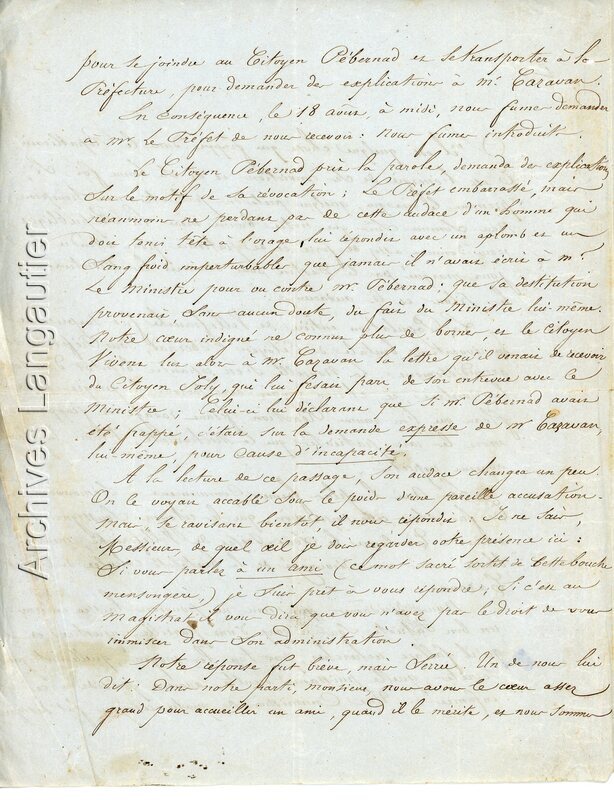 pour se joindre au Citoyen Pébernad et se transporter à la
Préfecture, pour demander des explications à mr. Cazavan.
En conséquence, le 18 août, à midi, nous fumes demander
à mr. Le Préfet de nous recevoir : nous fumes introduits.
Le Citoyen Pébernad prit la parole, demanda des explications
sur le motif de sa révocation ; Le Préfet embarrassé, mais
néanmoins ne perdant pas de cette audace d'un homme qui
doit tenir tête à l'orage, lui répondit avec un aplomb et un
sang froid imperturbables que jamais il n'avait écrit à mr.
Le Ministre pour ou contre mr. Pébernad : que sa destitution
provenait, sans aucun doute, du fait du Ministre lui-même.
Notre cœur indigné ne connut plus de bornes, et le Citoyen
Vivent lut alors à mr. Cazavan la lettre qu'il venait de recevoir
du Citoyen Joly, qui lui fesait part de son entrevue avec le
Ministre ; Celui-ci lui déclarant que si mr. Pébernad avait
été frappé, c'était sur la demande expresse de mr Cazavan,
lui même, pour cause d'incapacité.
A la lecture de ce passage, son audace changea un peu.
On le voyait accablé sous le poids d'une pareille accusation.
Mais, se ravisant bientôt il nous répondit : Je ne sais,
Messieurs, de quel œil je dois regarder votre présence ici :
Si vous parlez à un ami (ce mot sacré sortit de cette bouche
mensongère,) je suis prêt à vous répondre ; Si c'est au
magistrat, il vous dira que vous n'avez pas le droit de vous
immiscer dans son administration.
Notre réponse fut brève, mais serrée. Un de nous lui
dit : Dans notre parti, monsieur, nous avons le cœur assez
grand pour accueillir un ami, quand il le mérite, et nous sommes
Archives Langautier